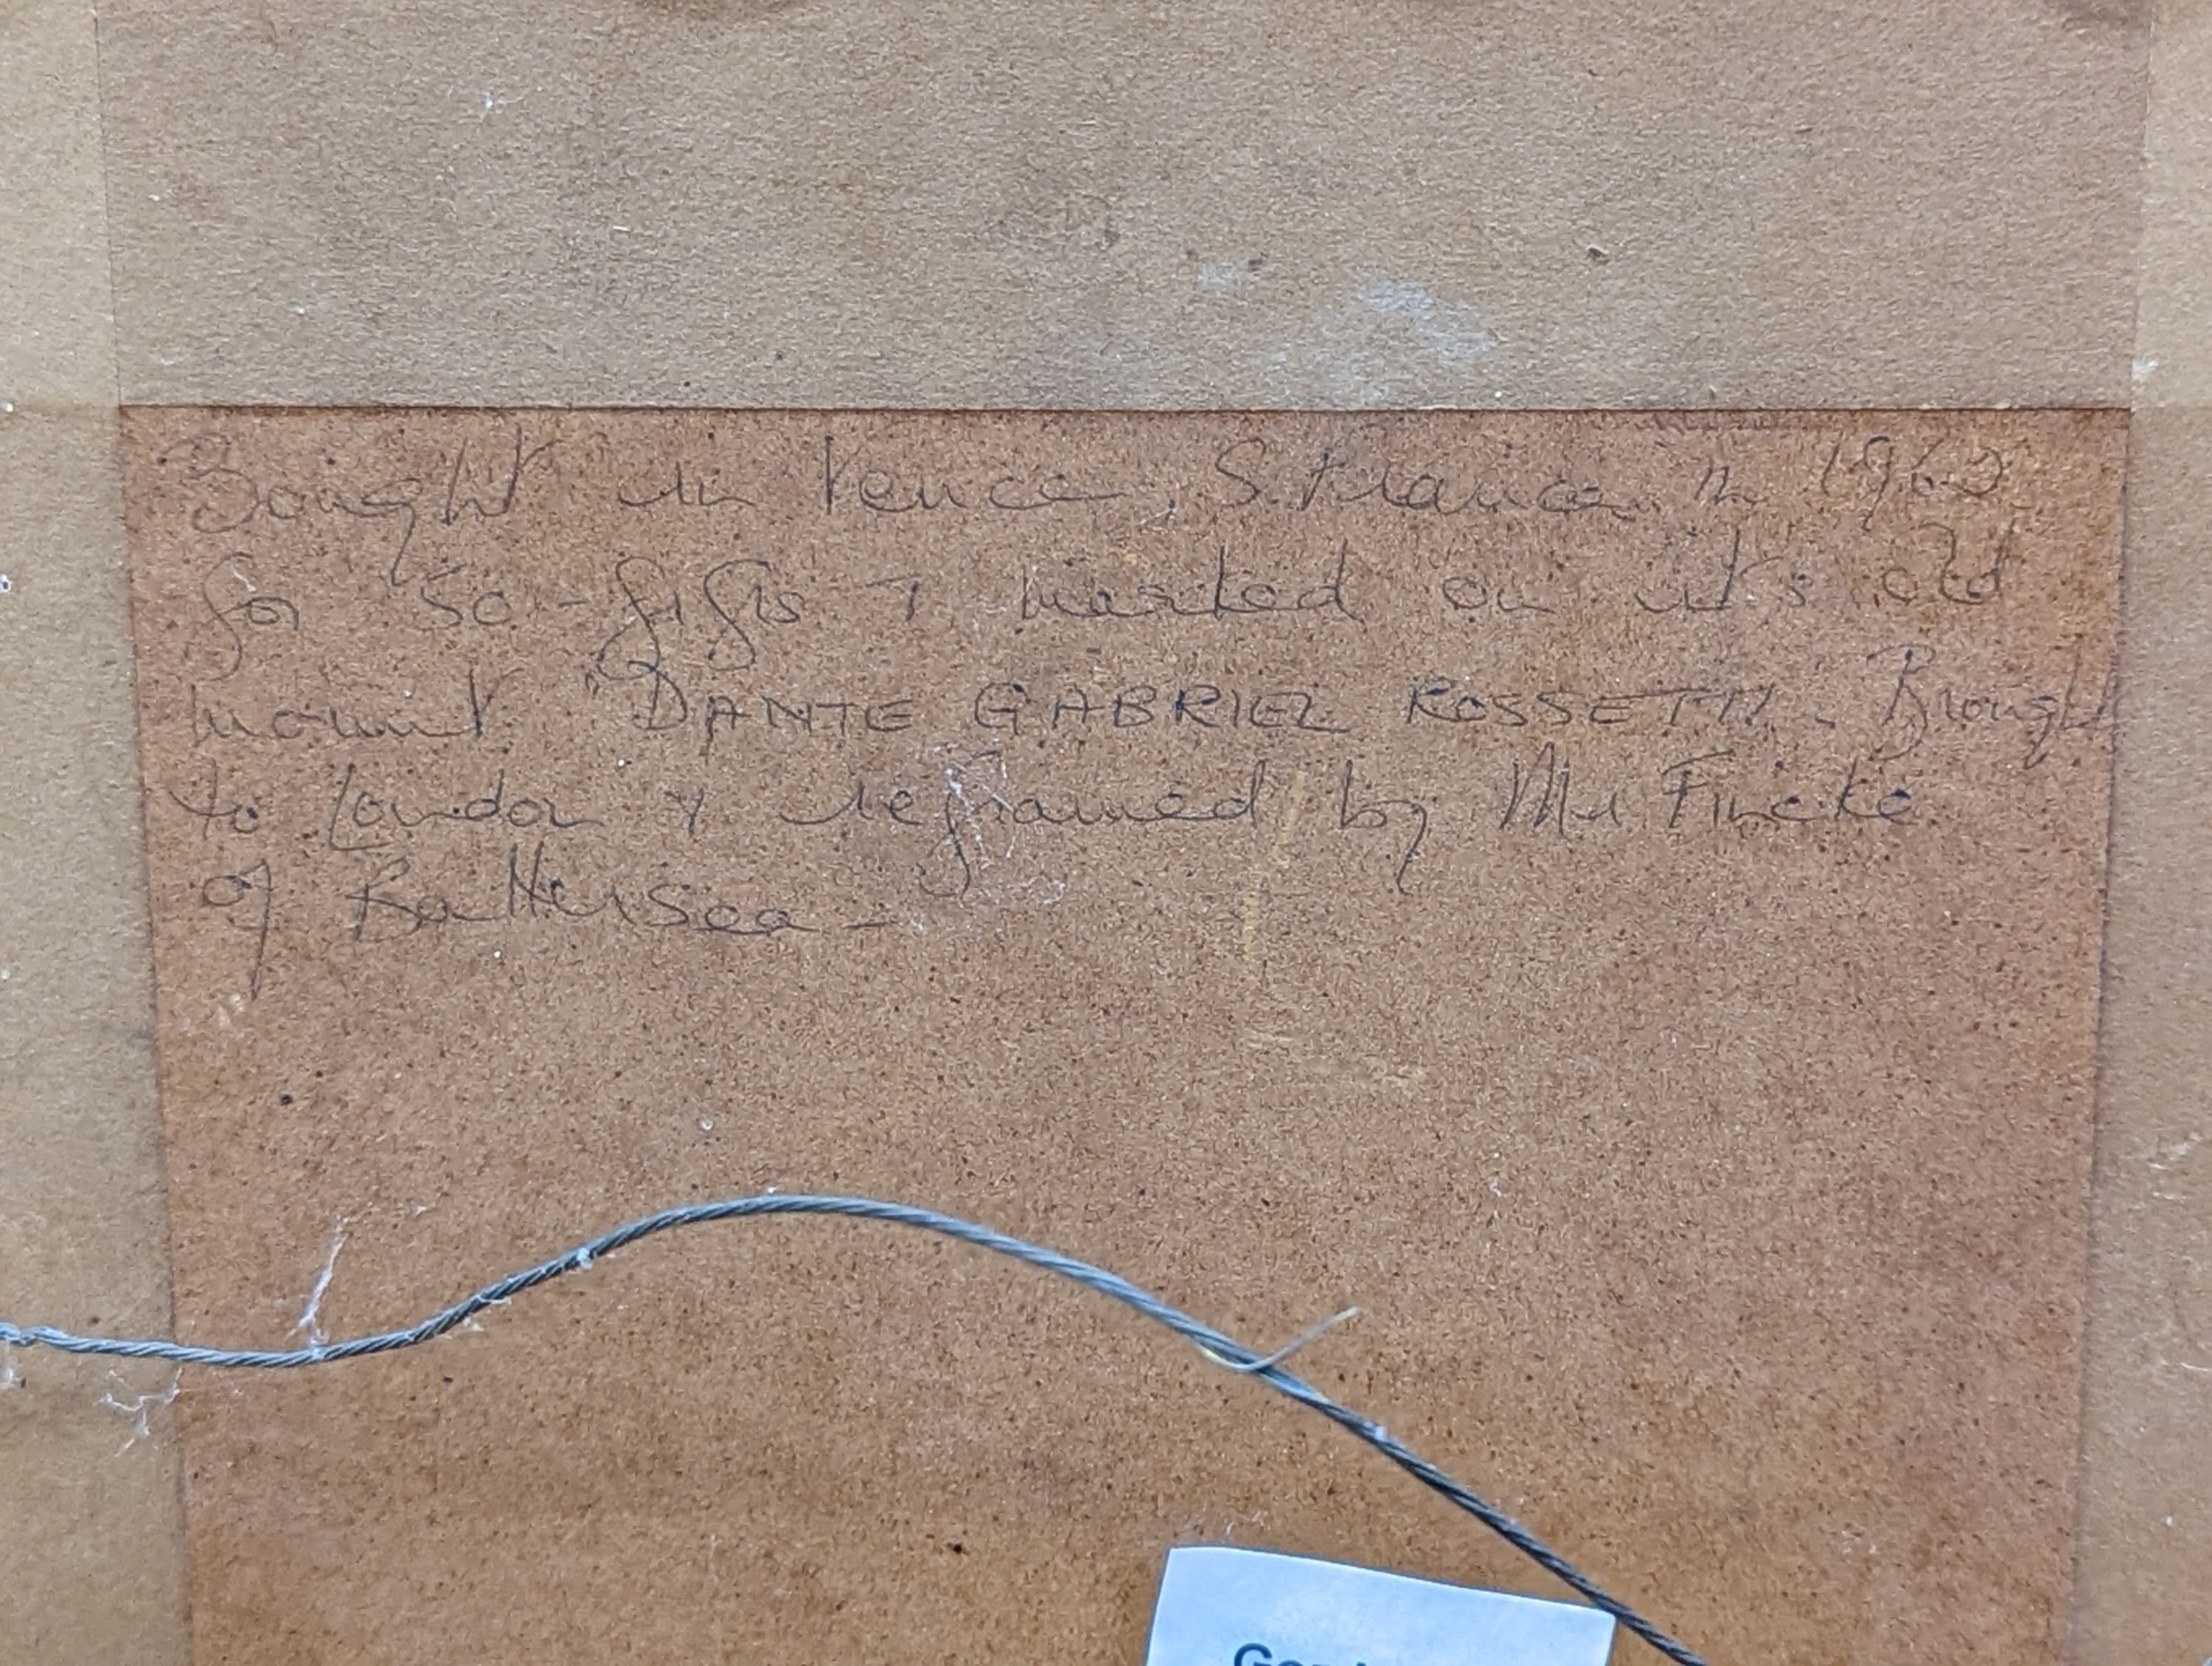 Bought in Vence, S. France in 1962
for 50 - & marked on it's old
mount "DANTE GABRIEL ROSSETTI". Brought
to London & reframed by Mr Fincke
of Battersea -